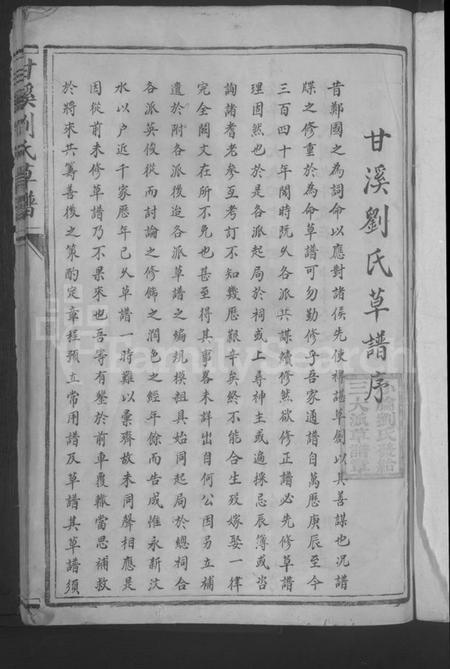 甘溪劉氏草譜序
昔鄭國之為詞命以應對諸侯先使裨諶草創以其善謀也況譜
牒之修重於為命草譜可勿勤修乎吾家通譜自萬歷庚辰至今
三百四十年閱時阮久各派共謀續修然欲修正譜必先修草譜
理固然也於是各派起局於祠或上尋神主或遍採忌辰簿或咨
詢諸耆老參互考訂不知幾歷艱辛矣終不能合生歿嫁娶一律
完全闕文在所不免也甚至得其事畧未詳出自何公因另立補
遺於附各派後迨各派草譜之編規模粗具始同起局於總祠合
各派英俊從而討論之修飾之潤色之經年餘而告成惟永新汶
水以户近千家歷年已久草譜一時難以彙齊故未同聲相應是
因從前未修草譜乃不果來也吾等有鑒於前車覆轍當思補救
於將來共籌善後之策酌定章程預立常用譜及草譜其草譜須
甘溪劉氏草譜
三大派草譜章
FamilySearch